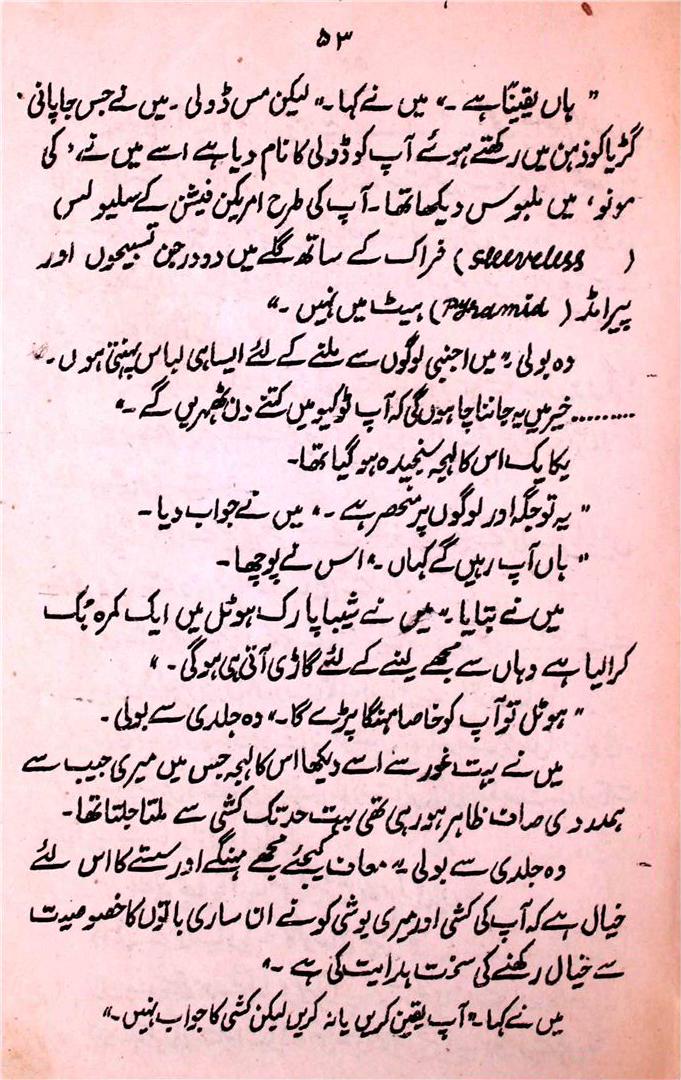 ۵۳
" ہاں یقیناً ہے ۔" میں نے کہا ۔" لیکن مس ڈولی ۔ میں نے جس جاپانی
گڑیا کو ذہن میں رکھتے ہوئے آپ کو ڈولی کا نام دیا ہے اسے میں نے ' کی
مونو ' میں ملبوس دیکھا تھا ۔ آپ کی طرح امریکن فیشن کے سلیولس
( sleeveless ) فراک کے ساتھ گلے میں دو درجن تسبیحوں اور
پیرامڈ ( Pyramid ) ہیٹ میں نہیں ۔"
وہ بولی " میں اجنبی لوگوں سے ملنے کے لئے ایسا ہی لباس پہنتی ہوں ۔
......... خیر میں یہ جاننا چاہوں گی کہ آپ ٹوکیو میں کتنے دن ٹھہریں گے ۔"
یکایک اس کا لہجہ سنجیدہ ہو گیا تھا۔
" یہ تو جگہ اور لوگوں پر منحصر ہے ۔" میں نے جواب دیا ۔
" ہاں آپ رہیں گے کہاں ۔" اس نے پوچھا ۔
میں نے بتایا " میں نے شیبا پارک ہوٹل میں ایک کمرہ بُک
کرالیا ہے وہاں سے مجھے لینے کے لئے گاڑی آتی ہی ہوگی ۔"
" ہوٹل تو آپ کو خاصا مہنگا پڑے گا ۔" وہ جلدی سے بولی ۔
میں نے بہت غور سے اسے دیکھا اس کا لہجہ جس میں میری جیب سے
ہمدردی صاف ظاہر ہو رہی تھی بہت حد تک کشی سے ملتا جلتا تھا ۔
وہ جلدی سے بولی " معاف کیجئے مجھے مہنگے اور سستے کا اس لئے
خیال ہے کہ آپ کی کشی اور میری یوشی کو نے ان ساری باتوں کا خصوصیت
سے خیال رکھنے کی سخت ہدایت کی ہے ۔"
میں نے کہا ۔" آپ یقین کریں یا نہ کریں لیکن کشی کا جواب نہیں ۔"